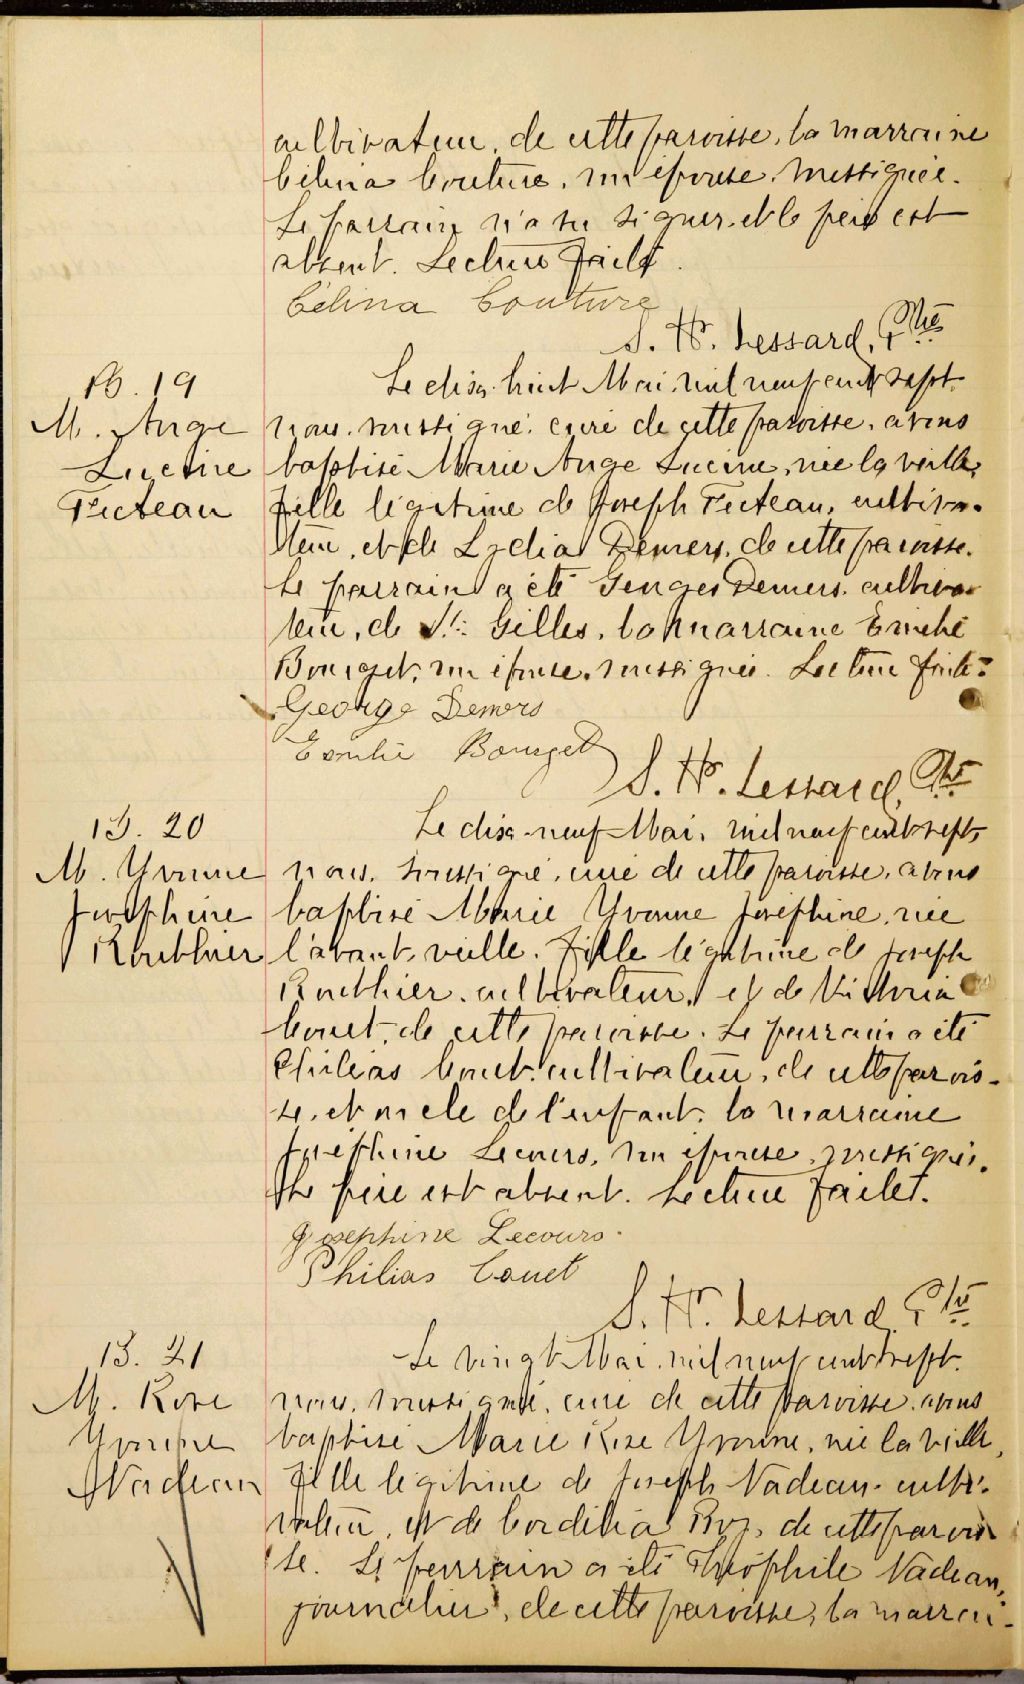 cultivateur, de cette paroisse, la marraine
Célina Couture, son épouse, soussignée.
Le parrain n'a su signer et le père est
absent. Lecture faite.
Célina Couture
S. H. Lessard, Ptre
B. 19
M. Ange
Lucine
Fecteau
Le dix-huit Mai, mil neuf cent sept
nous, soussigné, curé de cette paroisse, avons
baptisé Marie Ange Lucine, née la veille,
fille légitime de Joseph Fecteau, cultiva-
teur, et de Lydia Demers, de cette paroisse.
Le parrain a été Georges Demers, cultiva-
teur, de St. Gilles, la marraine Emélie
Bourget, son épouse, soussignés. Lecture faite.
George Demers
Emélie Bourget
S. H. Lessard, Ptre
B. 20
M. Yvonne
Joséphine
Routhier
Le dix-neuf Mai, mil neuf cent sept,
nous, soussigné, curé de cette paroisse, avons
baptisé Marie Yvonne Joséphine, née
l'avant-veille, fille légitime de Joseph
Routhier, cultivateur, et de Victoria
Couet, de cette paroisse. Le parrain a été
Philias Couet, cultivateur, de cette parois-
se, et oncle de l'enfant, la marraine
Joséphine Lecours, son épouse, soussignés.
Le père est absent. Lecture faite.
Josephine Lecours.
Philias Couet
S. H. Lessard, Ptre
B. 21
M. Rose
Yvonne
Nadeau
Le vingt Mai, mil neuf cent sept
nous, soussigné, curé de cette paroisse, avons
baptisé Marie Rose Yvonne, née la veille,
fille légitime de Joseph Nadeau, culti-
vateur, et de Cordélia Roy, de cette parois-
se. Le parrain a été Théophile Nadeau,
journalier, de cette paroisse, la marrai-